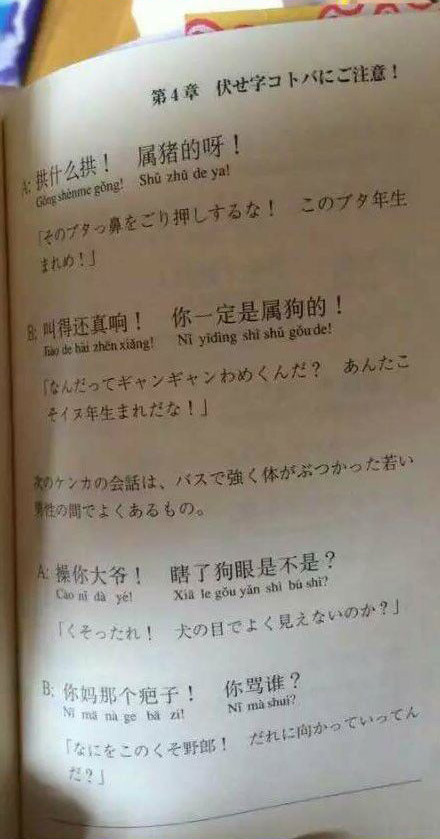 第4章　伏せ字コトバにご注意！
A: 拱什么拱！　属猪的呀！
Gǒng shènme gǒng!　Shǔ zhū de ya!
「そのブタっ鼻をごり押しするな！　このブタ年生
まれめ！」
B: 叫得还真响！　你一定是属狗的！
Jiào de hái zhēn xiǎng!　Nǐ yīdìng shì shǔ gǒu de!
「なんだってギャンギャンわめくんだ？　あんたこ
そイヌ年生まれだな！」
次のケンカの会話は、バスで強く体がぶつかった若い
男性の間でよくあるもの。
A: 操你大爷！　瞎了狗眼是不是？
Cào nǐ dà yé!　Xiā le gǒu yǎn shì bú shì?
「くそったれ！　犬の目でよく見えないのか？」
B: 你妈那个疤子！　你骂谁？
Nǐ mā nà ge bā zi!　Nǐ mà shuí?
「なにをこのくそ野郎！　だれに向かっていってん
だ？」